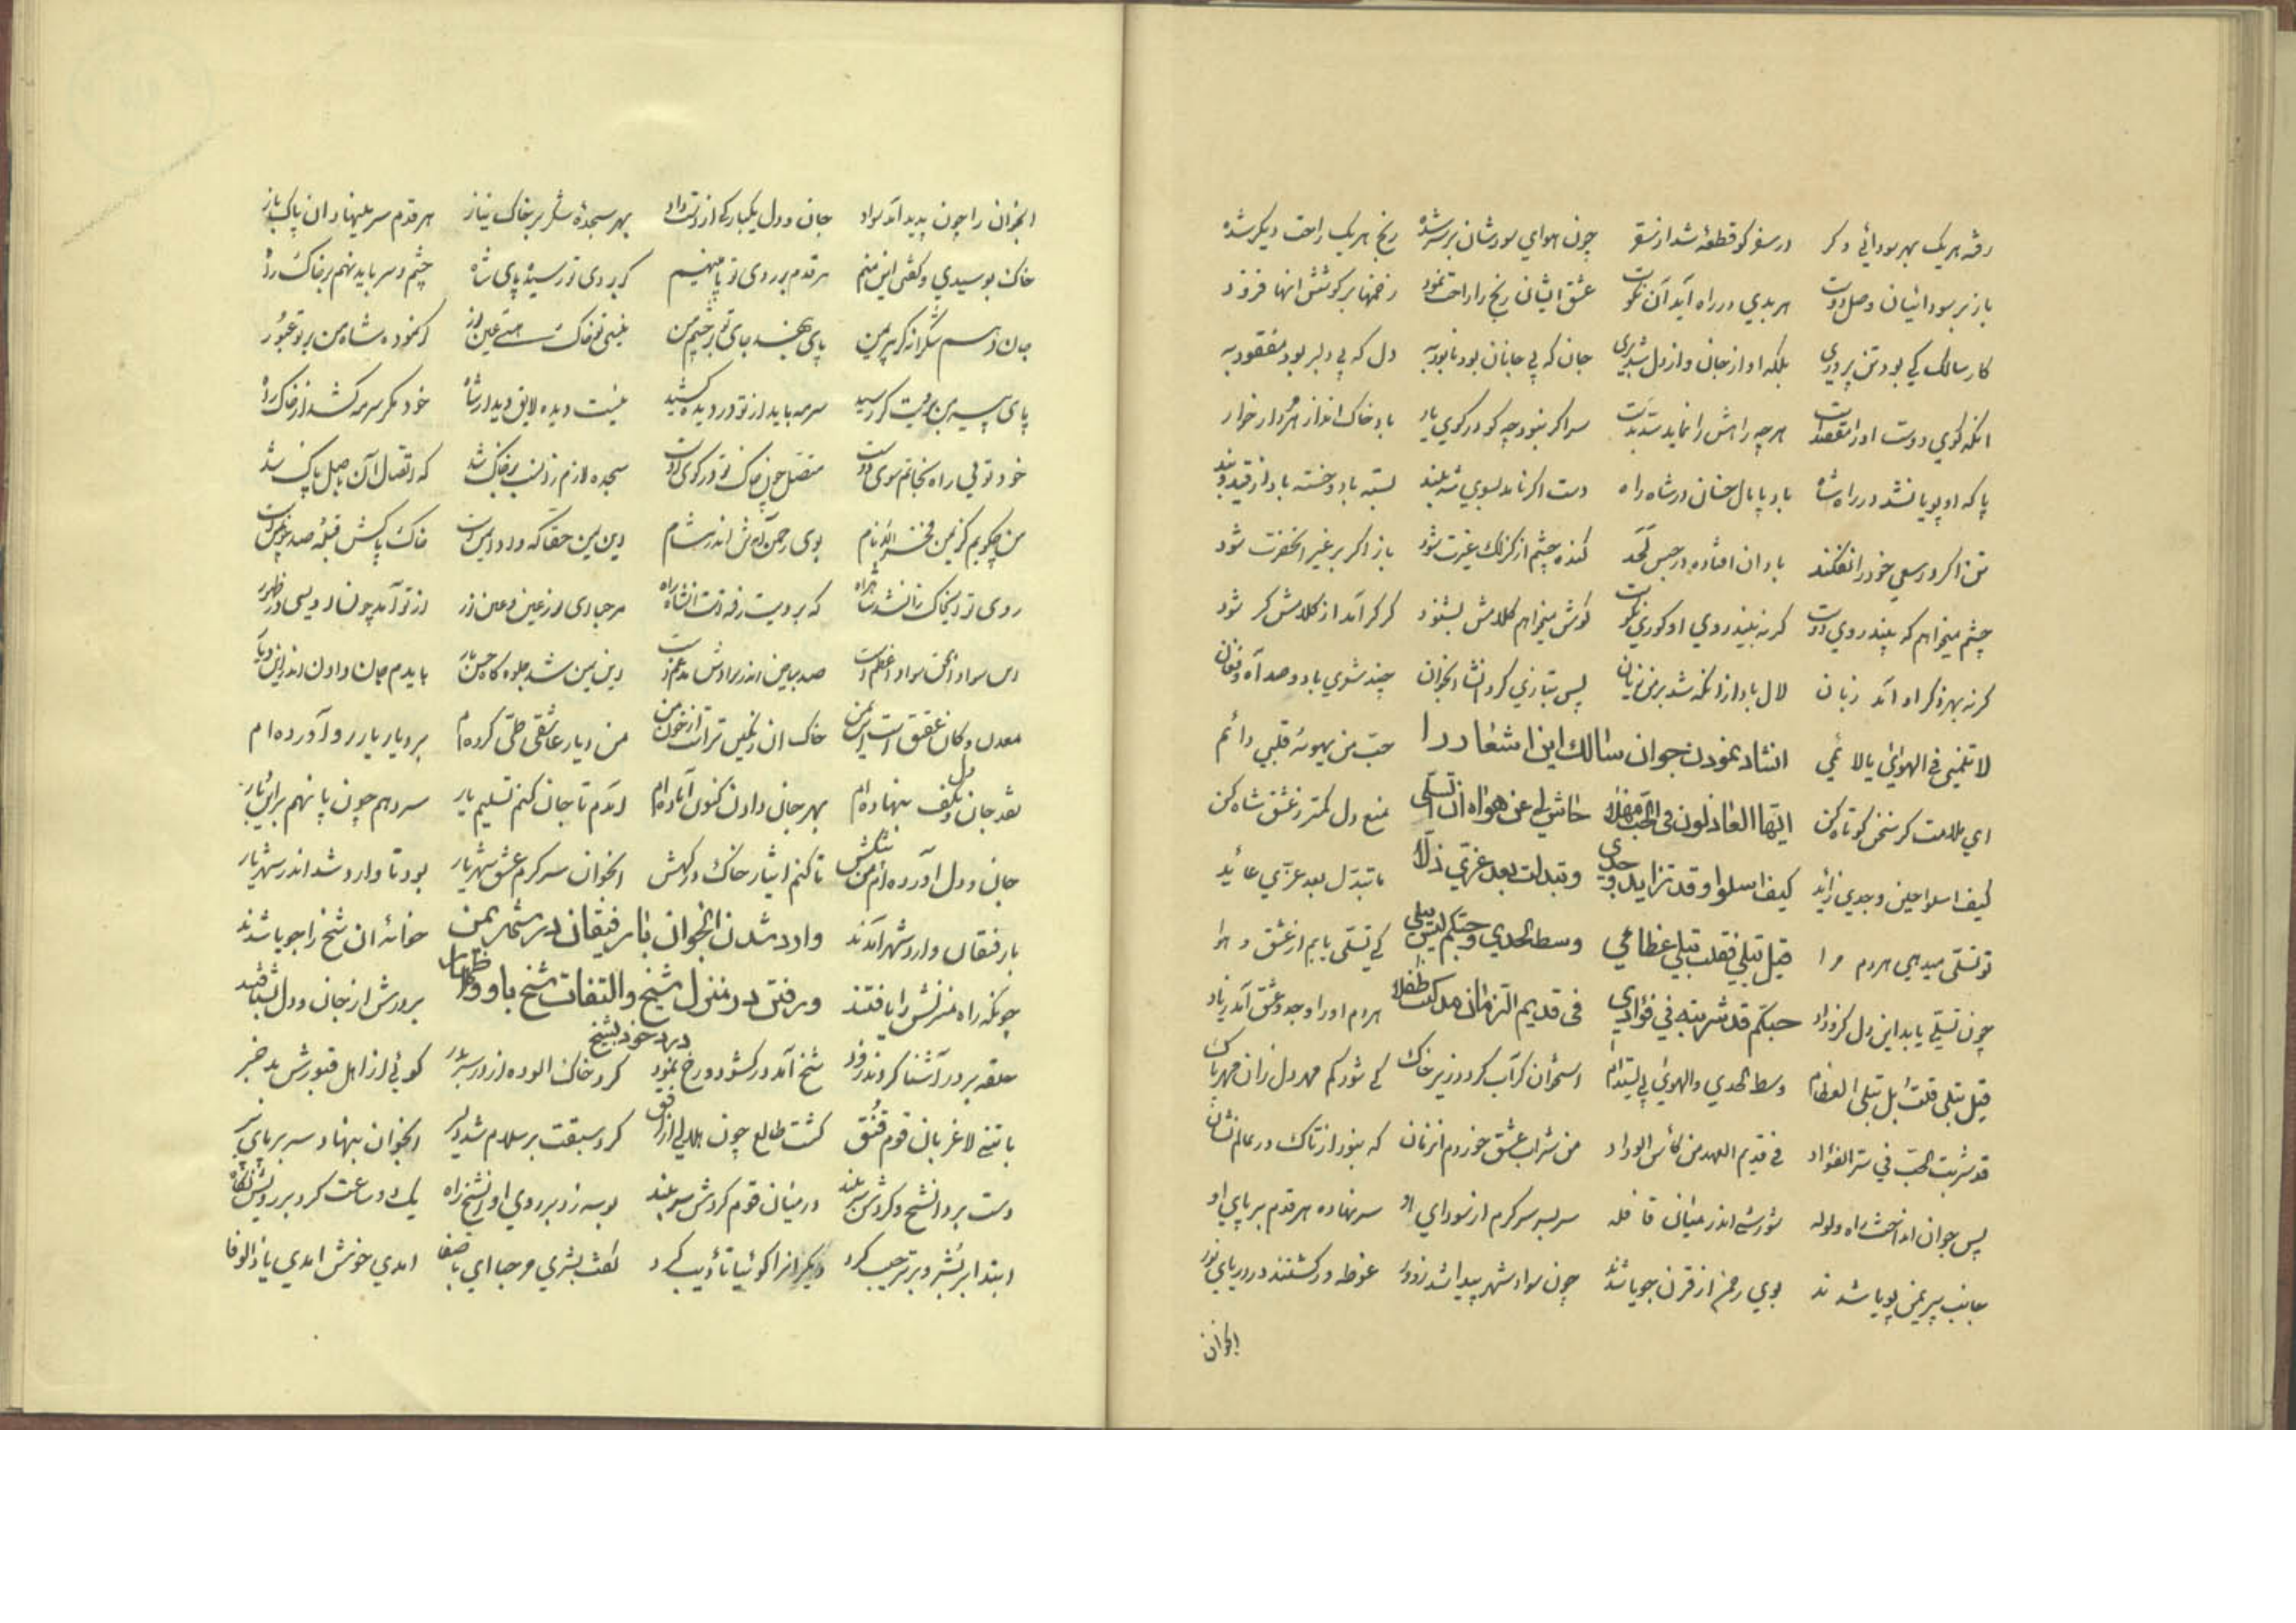 رفته هریک بهر سودائی دگر در سفر کو قطعهٔ شد از سقر چون هوای سودشان بر سر شده رنج هر یک راحت دیگر شده
باز بر سودائیان وصل دوست هر بدی در راه آید آن نکوست عشق ایشان رنج را راحت نمود زخمها بر کوشش انها فزود
کار سالک کی بود تن پروری بلکه او از جان و از دل شد بری جان که بی جانان بود نابود به دل که بی دلبر بود مفقود به
انکه کوی دوست او را مقصدست هرچه راهش را نماید سد بدست سر اکر نبود چه کو در کوی یار باد خاک انداز هر مردار خوار
پا که او پویا نشد در راه شاه باد پامال خسان در شاه راه دست اکر ناید بسوی شه بلند بسته باد و خسته باد از قید و بند
تن اکر در سعی خود را نفکند باد ان افتاده در حبس لحد کنده چشم از کزلک غیرت شود باز اکر بر غیر انحضرت شود
چشم میخواهم که بیند روی دوست کر نه بیند روی او کوری نکوست کوش میخواهم کلامش بشنود کر کر آمد از کلامش کر شود
کر نه بهر ذکر او آمد زبان لال باد از انکه شد بر من زیان پس بتازی کرد انشا انجوان چند شعری با دو صد آه و فغان
لا تلمنی فی الهوی یا لائمی انشاد نمودن جوان سالک این اشعار را حب من یهوئه قلبی دائم
ای ملامت کر سخن کوتاه کن ایها العاذلون فی الحب مهلا حاش لی عن هواه ان اتسلی منع دل کمتر ز عشق شاه کن
کیف اسلوا حین وجدی زائد کیف اسلوا و قد تزاید وجدی و تبدلت بعد عزی ذلا ما تبدل بعد عزی عائد
تو تسلی میدهی هردم مرا قیل تبلی فقلت تبلی عظامی وسط لحدی و حبکم لیس یبلی کی تسلی یابم از عشق و هوا
چون تسلی یابد این دل کز وداد حبکم قد شربته فی فؤادی فی قدیم الزمان مذ کنت طفلا هردم او را وجد و عشق آمد زیاد
قیل تبلی قلت بل تبلی العظام وسط لحدی والهوی لی یستدام استخوان کر آب کردد زیر خاک کی شود کم مهر دل زان مهر پاک
قد شربت الحب فی سر الفؤاد فی قدیم العهد من کأس الوداد من شراب عشق خوردم انزمان که نبود از تاک در عالم نشان
پس جوان انداخت در راه ولوله شورشی اندر میان قافله سربسر سرکرم از سودای او سر نهاده هر قدم بر پای او
جانب پیر یمن پویا شدند بوی رحمن از قرن جویا شدند چون سواد شهر پیدا شد ز دور غوطه ور کشتند در دریای نور
انجوان
انجوان را چون پدید آمد سواد جان و دل یکبارکی از دست داد بهر سجدهٔ شکر بر خاک نیاز هر قدم سر مینهاد ان پاک باز
خاک بوسیدی و کفتی این منم هر قدم بر روی تو پا مینهم که بروی تو رسیدهٔ پای شاه چشم و سر باید نهم بر خاک راه
جان دهم شکرانه کر پیر من پای بنهد جای تو بر چشم من نیستی تو خاک هستی عین نور که نموده شاه من بر تو عبور
پای پیر من برویت کر رسید سرمه باید از تو در دیده کشید نیست دیده لایق دیدار شاه خود مکر سرمه کشد از خاک راه
خود توئی راه نجاتم سوی دوست متصل چون خاک تو در کوی دوست سجده لازم زانسب بر خاک شد که اتصال آن باصل پاک شد
من چکویم کز یمن فخر الانام بوی رحمن آمدش اندر مشام
معدن و کان عقیق است این یمن خاک ان رنکین تر است از خون من من دیار عاشقی طی کرده‌ام بر دیار یار رو آورده ام
نقد جان و دل بکف بنهاده ام بهر جان دادن کنون آماده ام آمدم تا جان کنم تسلیم یار سر دهم چون پا نهم بر این دیار
جان و دل آورده‌ام من پیشکش تا کنم ایثار خاک درکهش انجوان سرکرم عشق شهریار بود تا وارد شد اندر شهر یار
با رفیقان وارد شهر آمدند وارد شدن انجوان با رفیقان در شهر یمن خانهٔ ان شیخ را جویا شدند
چونکه راه منزلش را یافتند و رفتن در منزل شیخ و التفات شیخ باو و اظهار درد خود بشیخ بر درش از جان و دل بشتافتند
حلقه بر در آشنا کردند زود شیخ آمد در کشود و رخ نمود کرد خاک الوده از در سر بدر کوئی از اهل قبورش بد خبر
با تنی لاغر بان قوم قنق کشت طالع چون هلالی از افق کرد سبقت بر سلام شه دلیر انجوان بنهاد سر بر پای پیر
دست برد انشیخ و کردش سر بلند در میان قوم کردش سر بلند بوسه زد بر روی او انشیخ راه یک دو ساعت کرد بر رویش نکاه
ابتدا بر بشر و بر ترحیب کرد دیکرانرا کوئیا تأدیب کرد کفت بشری مرحبا ای باصفا امدی خوش امدی یا ذالوفا